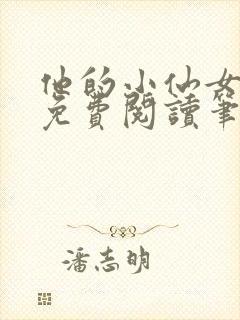 他的小仙女
免費閱讀筆
潘志明